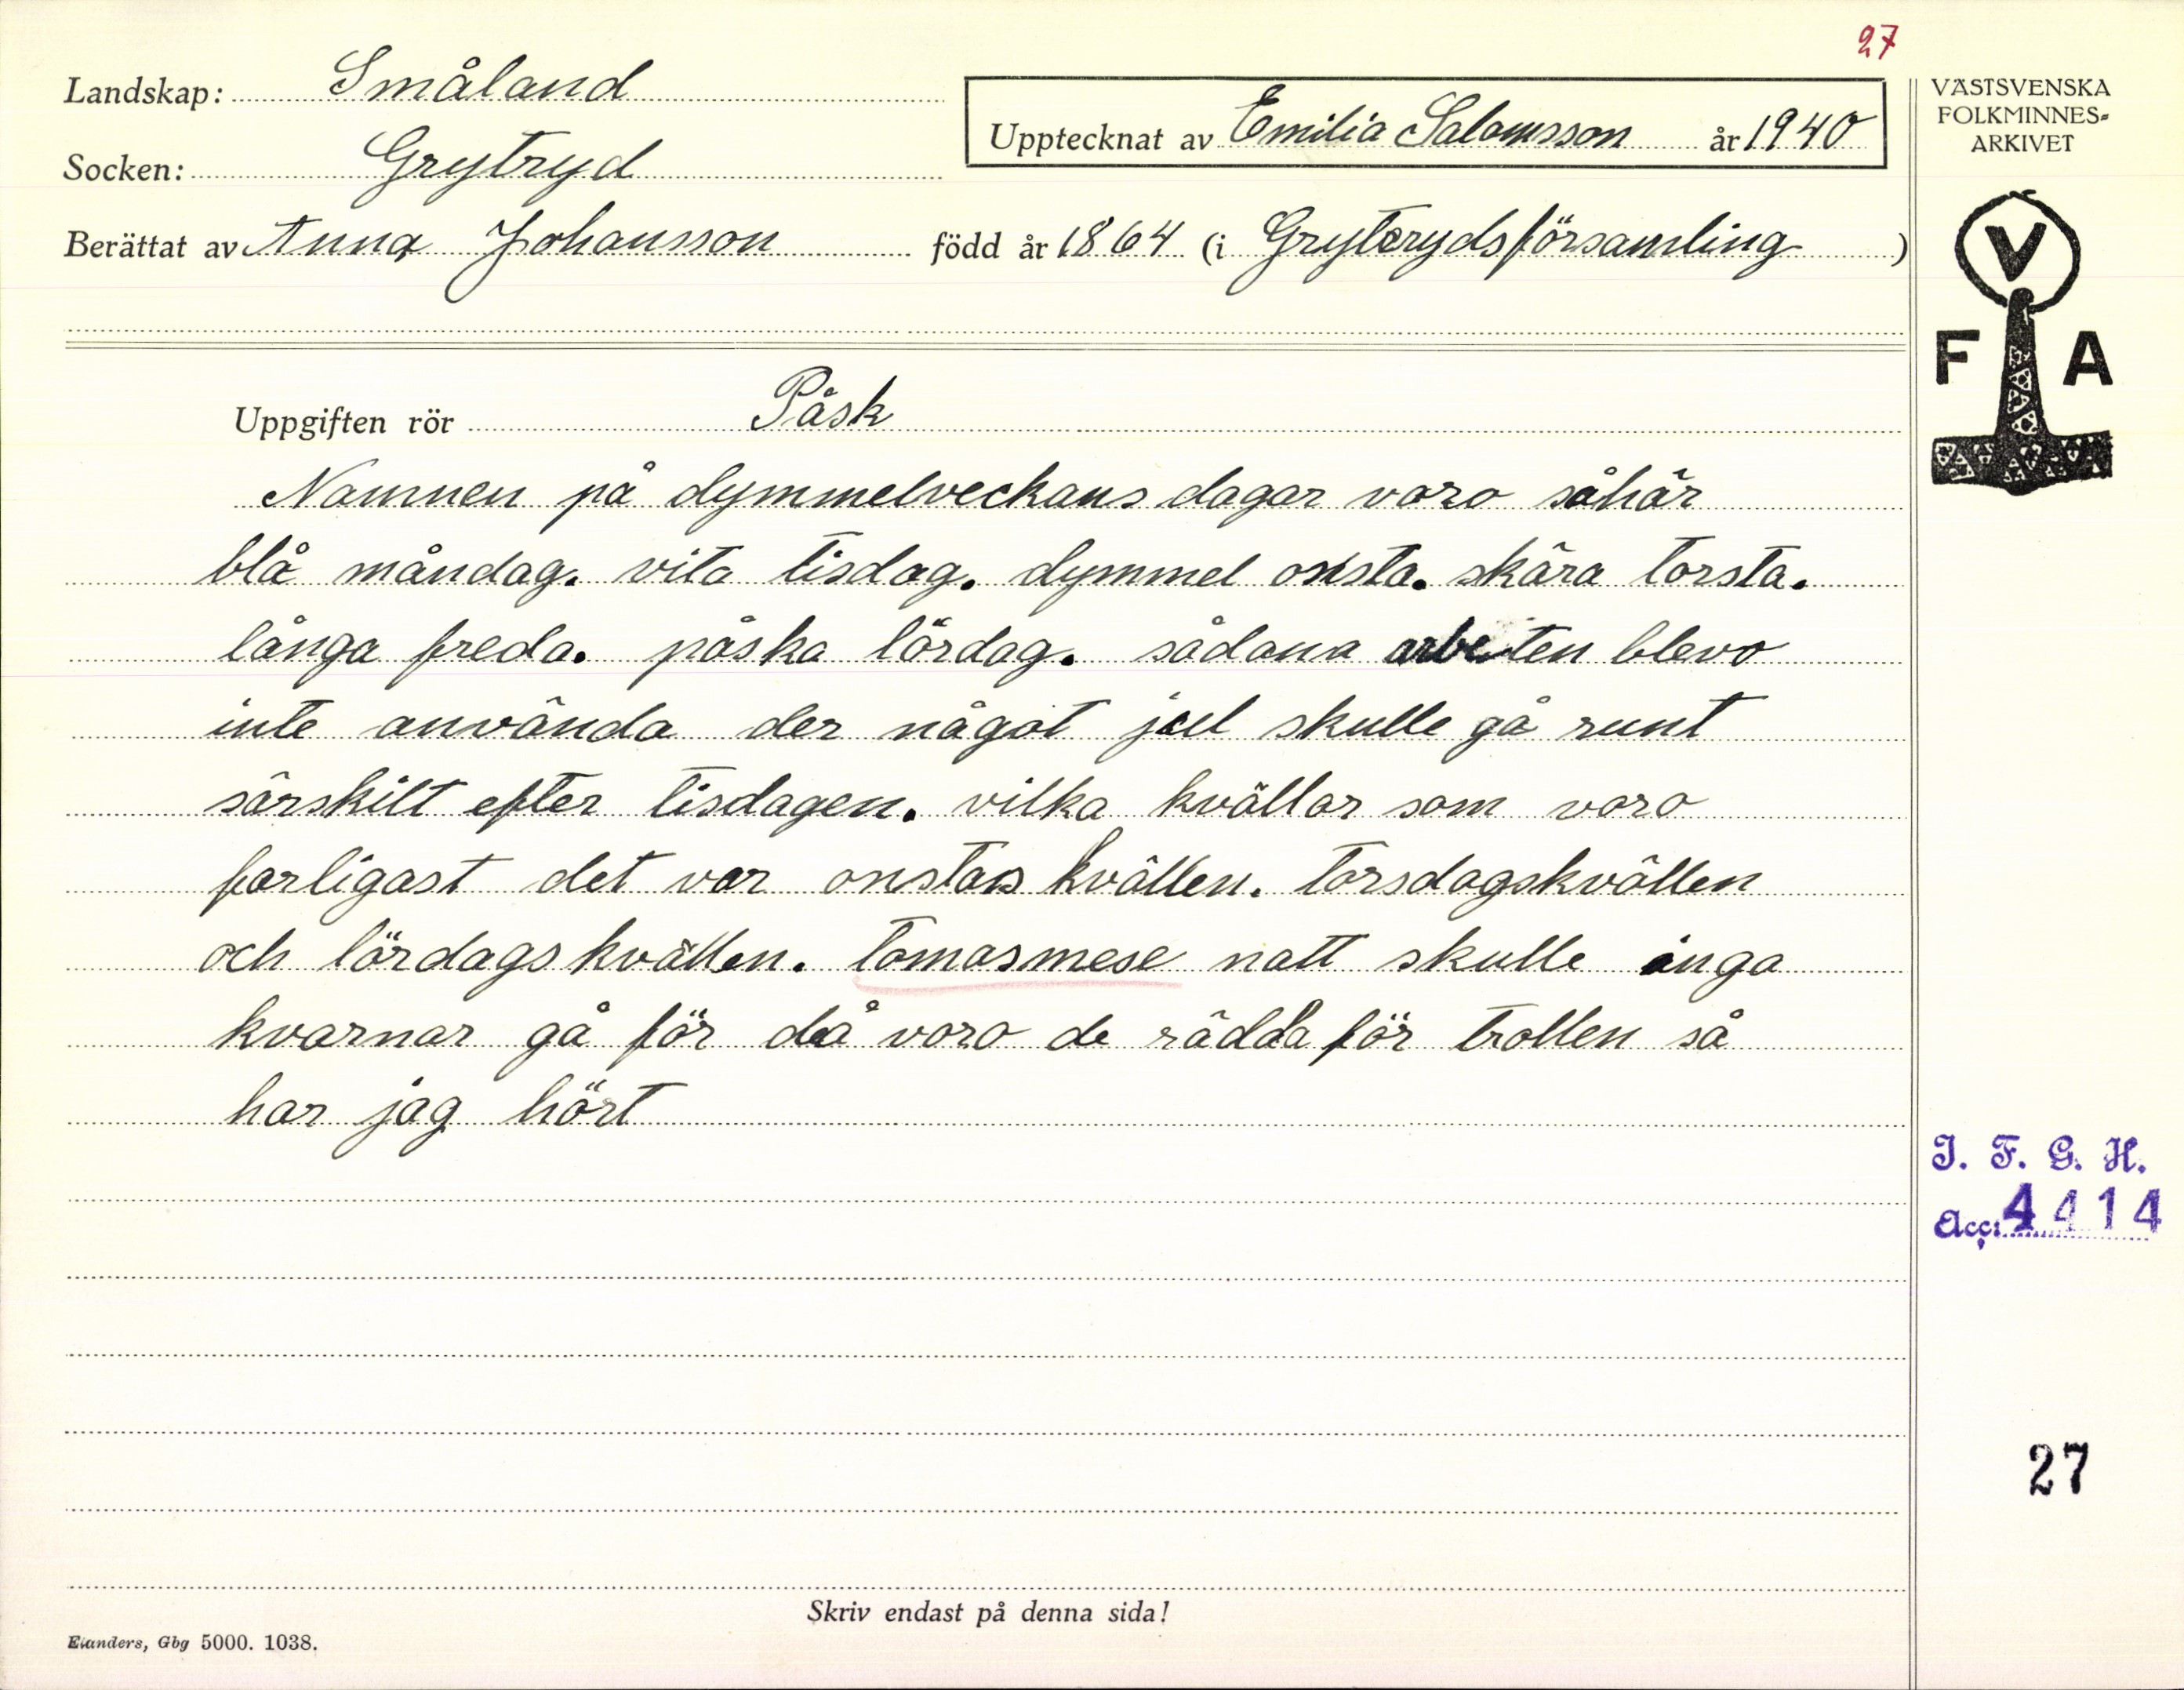 27
Landskap: Småland
Socken: Grytryd
Upptecknat av Emilia Salomsson år 1940
Berättat av Anna Johansson född år 1864 (i Gryterydsförsamling)
Uppgiften rör Påsk
Namnen på dymmelveckans dagar voro såhär
blå måndag. vita tisdag. dymmel onsta. skära torsta.
långa freda. påska lördag. sådana arbeten blevo
inte använda der något jul skulle gå runt
särskilt efter tisdagen. vilka kvällar som voro
farligast det var onstas kvällen. torsdagskvällen
och lördags kvällen. tomasmese natt skulle inga
kvarnar gå för då voro de rädda för trollen så
har jag hört
Skriv endast på denna sida!
Elanders, Gbg 5000. 1038.
VÄSTSVENSKA
FOLKMINNES=
ARKIVET
V
F A
I. F. G. H.
Acc: 4414
27